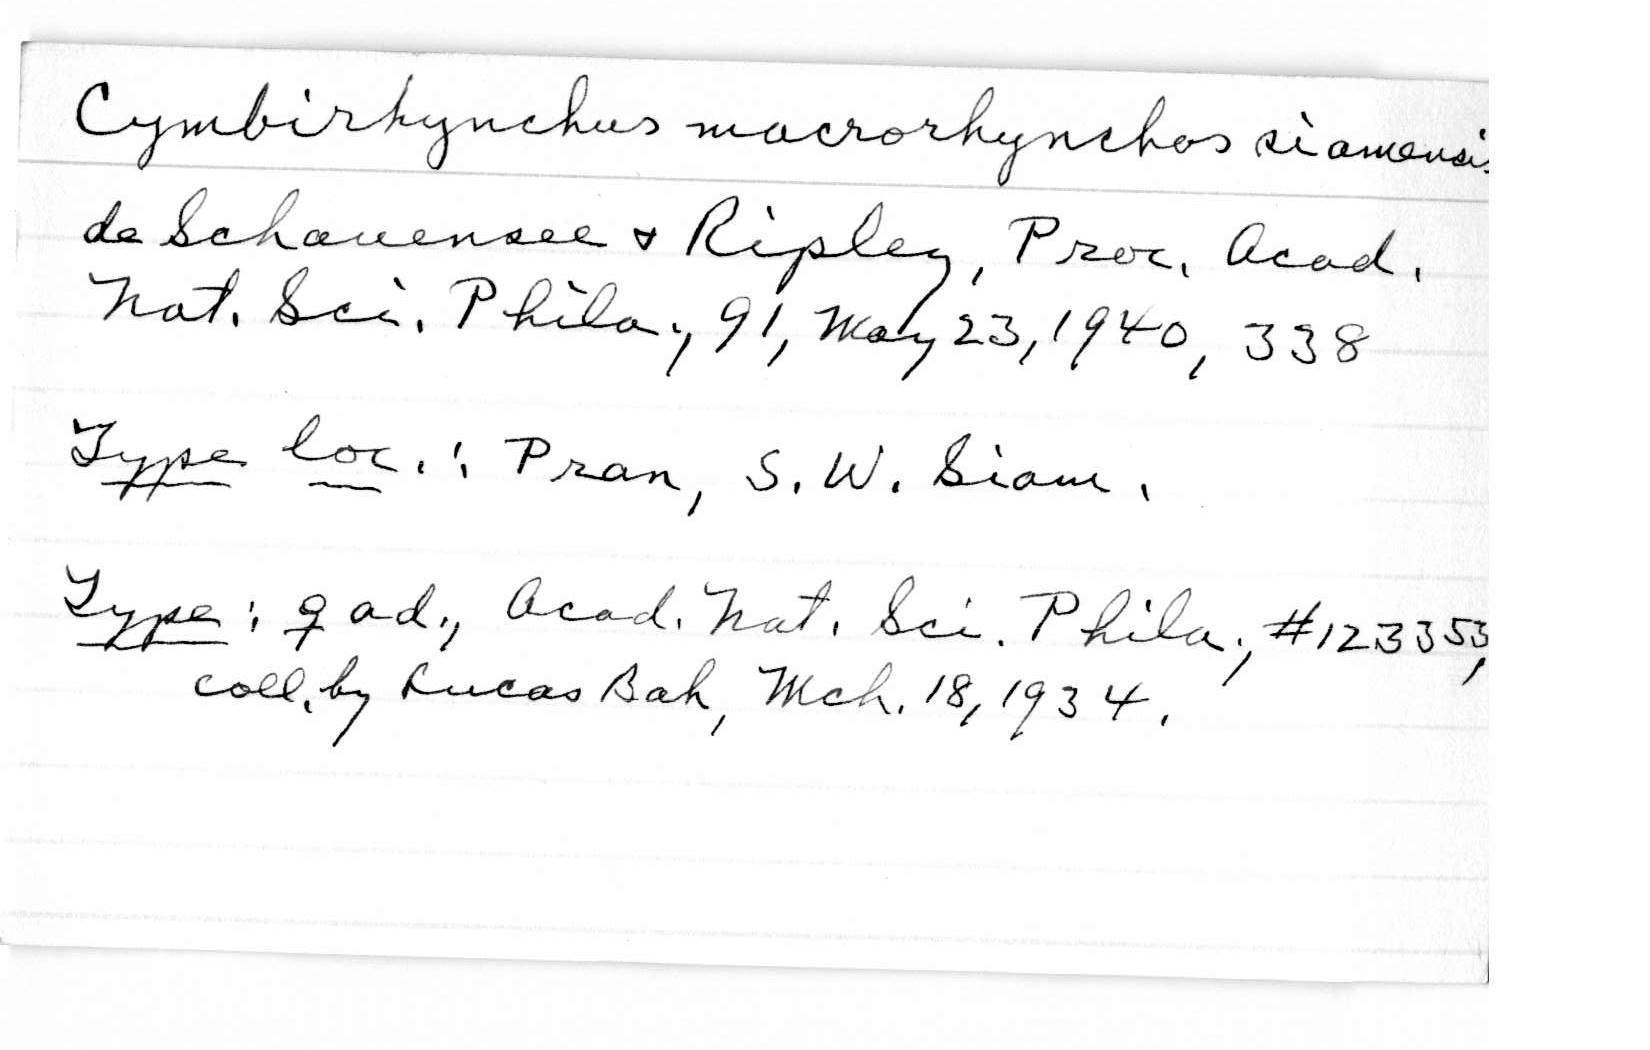 Cymbirhynchus macrorhynchos siamensis
de Schauensee & Ripley, Proc. Acad.
Nat. Sci. Phila., 91, May 23, 1940, 338
Type loc.: Pran, S.W. Siam.
Type: ♀ ad., Acad. Nat. Sci. Phila., #123353,
coll. by Lucas Bah, Mch. 18, 1934.